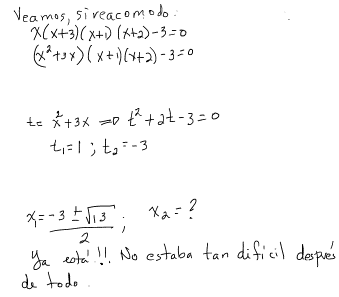 Veamos, si reacomodo:
x(x+3)(x+1)(x+2)-3=0
(x²+3x)(x+1)(x+2)-3=0
t= x²+3x ⇒ t²+2t-3=0
t₁=1 ; t₂=-3
x₁=-3±√13/2 ; x₂=?
Ya está!!! No estaba tan difícil después
de todo.